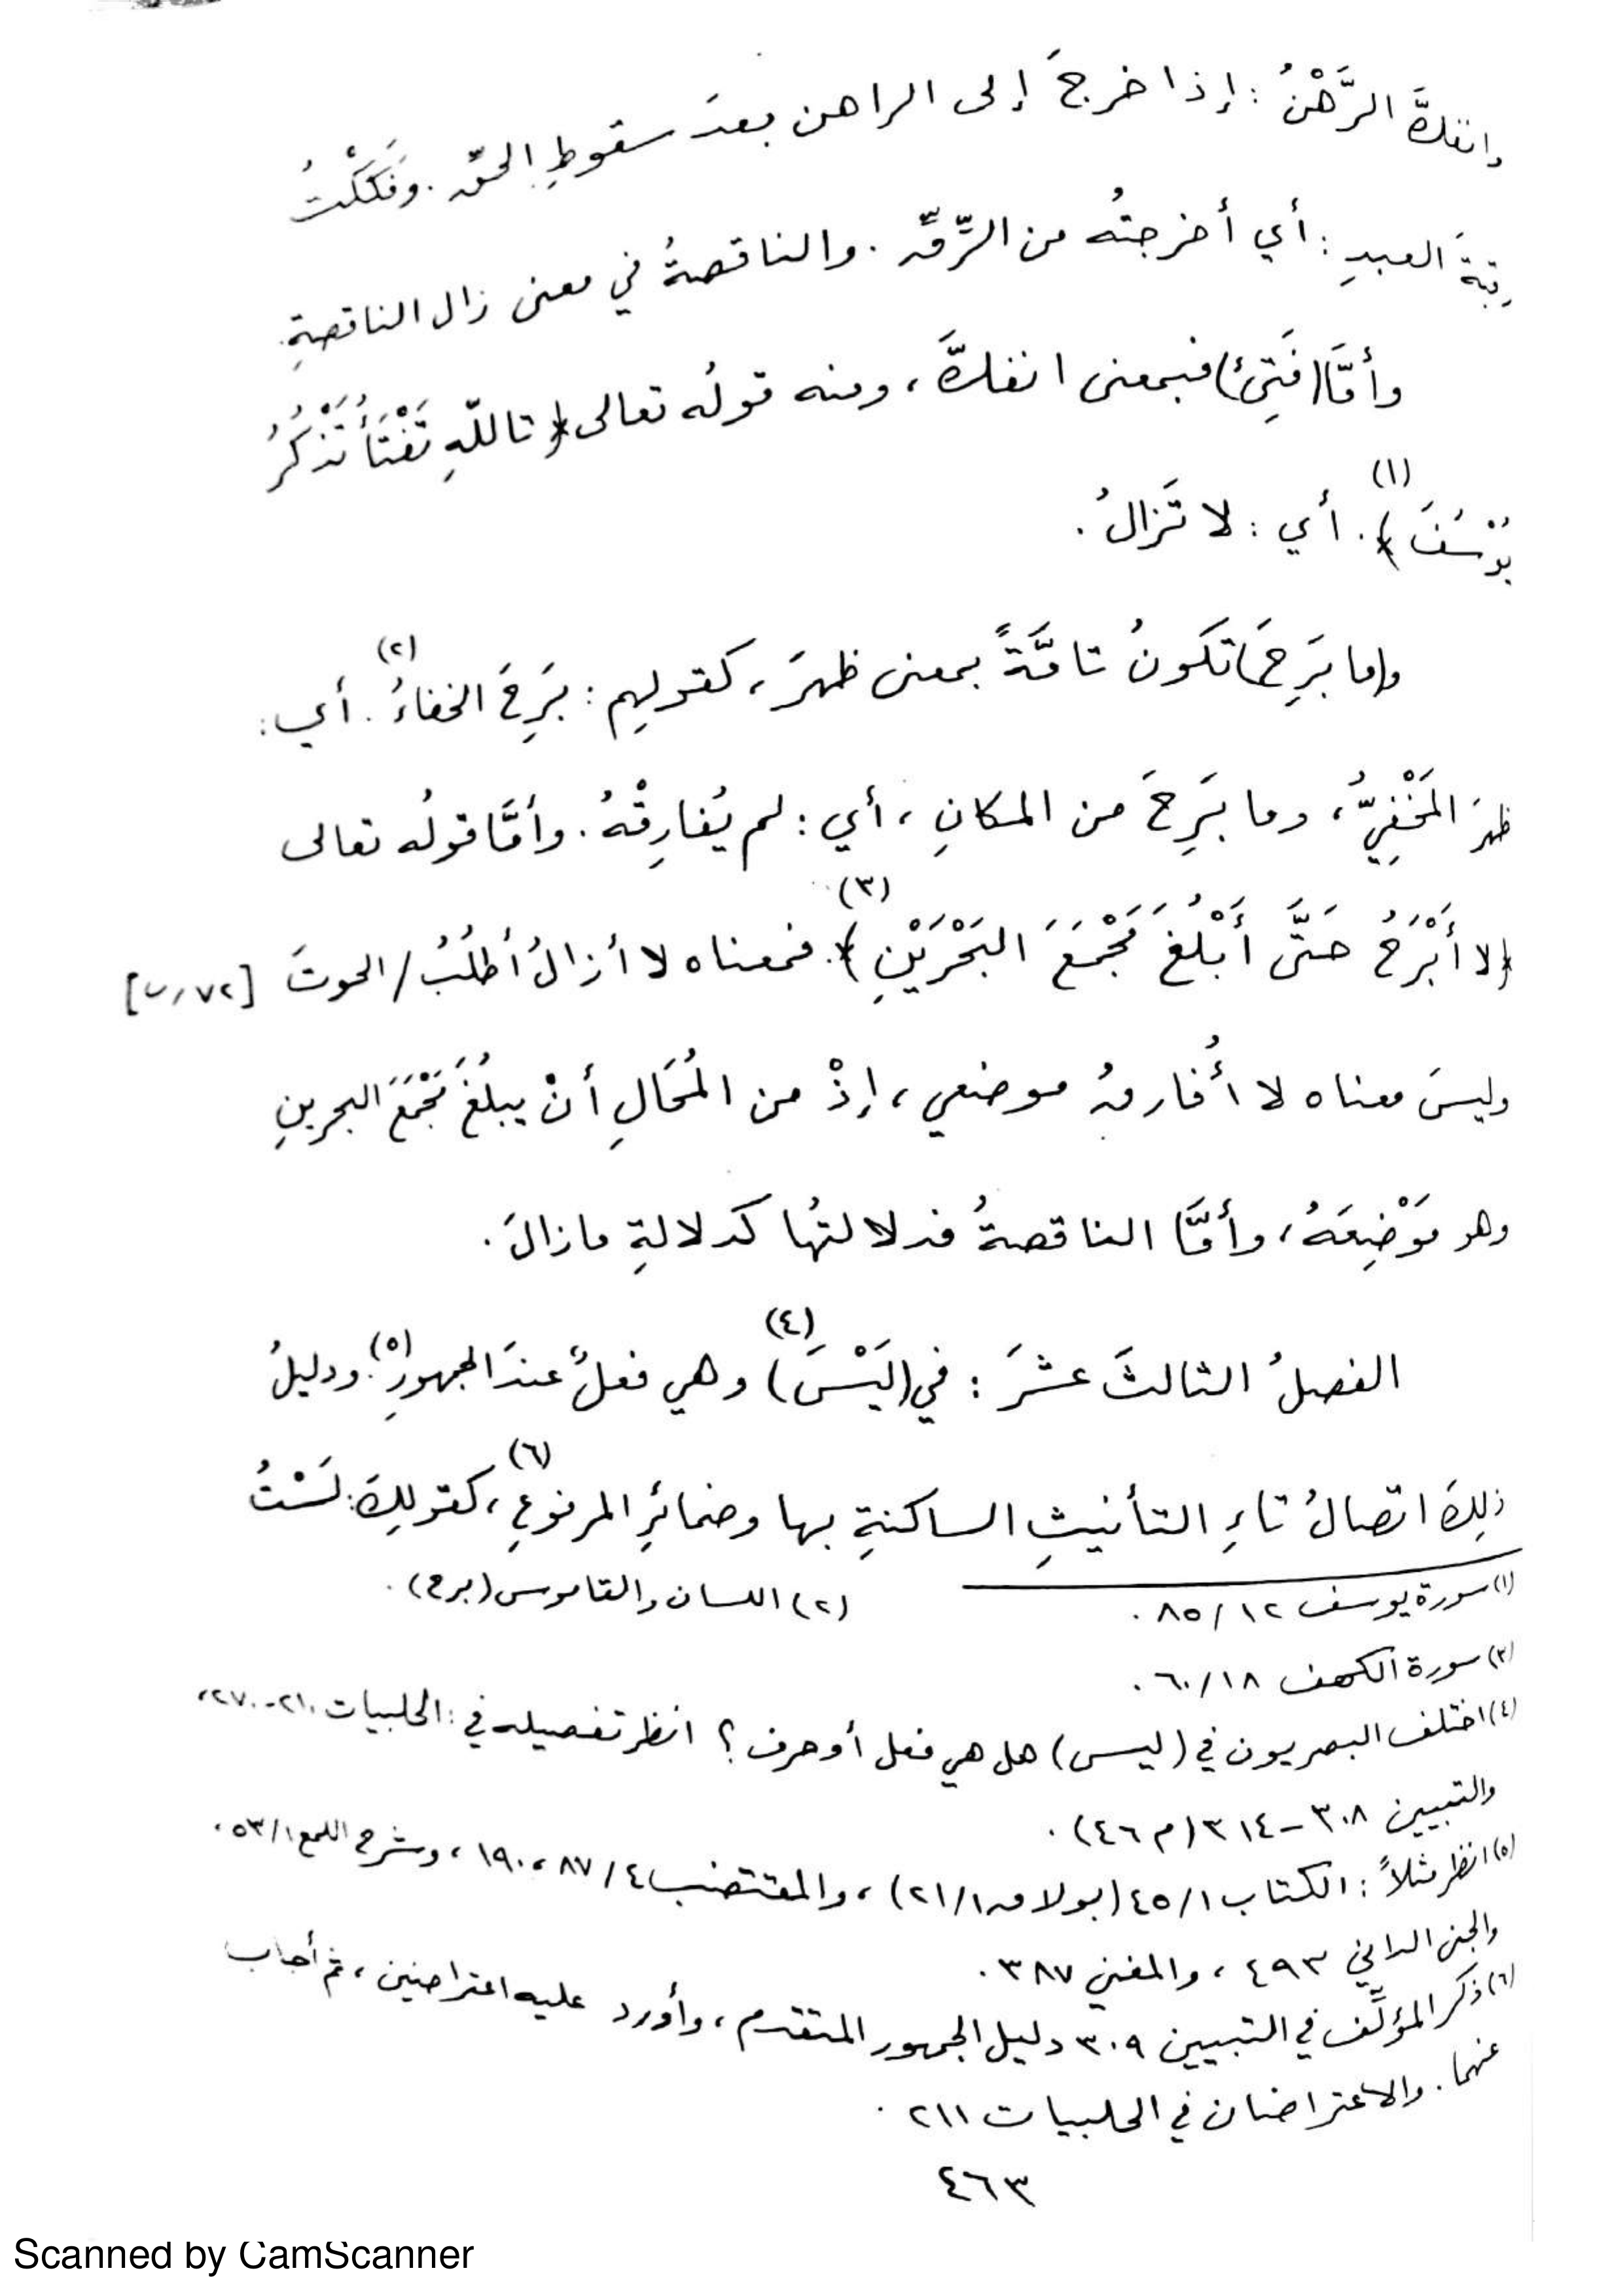 وانفكَّ الرَّهْنُ : إذا خرجَ إلى الراهن بعدَ سقوطِ الحقِّ . وفَكَكْتُ
رقبةَ العبدِ : أي أخرجتُه من الرِّقِّ . والناقصةُ في معنى زال الناقصةِ .
وأمَّا (فَتِئَ) فبمعنى انفكَّ ، ومنه قولُه تعالى ﴿ تاللّهِ تَفْتَأُ تَذْكُرُ
يُوْسُفَ ﴾ (١) . أي : لا تَزالُ .
وما بَرِحَ تكونُ تامَّةً بمعنى ظهرَ ، كقولهم : بَرِحَ الخفاءُ (٢) . أي :
ظهرَ المَخْفِيُّ ، وما بَرِحَ من المكانِ ، أي : لم يُفارِقْهُ . وأمَّا قولُه تعالى
﴿ لا أَبْرَحُ حَتَّى أَبْلُغَ مَجْمَعَ البَحْرَيْنِ ﴾ (٣) . فمعناه لا أزالُ أطلُبُ / الحوتَ [٧٢/ب]
وليسَ معناه لا أُفارقُ موضعي ، إذْ من المُحَالِ أنْ يبلُغَ مَجْمَعَ البحرينِ
وهو مَوْضِعَهُ ، وأمَّا الناقصةُ فدلالتُها كدلالةِ مازالَ .
الفصلُ الثالثَ عشَرَ : في (لَيْسَ) (٤) وهي فعلٌ عندَ الجمهورِ (٥) . ودليلُ
ذلِكَ اتصالُ تاءِ التأنيثِ الساكنةِ بها وضمائرِ المرفوعِ (٦) ، كقولِكَ : لَسْتُ
(١) سورة يوسف ١٢ / ٨٥ . (٢) اللسان والقاموس (برح) .
(٣) سورة الكهف ١٨ / ٦٠ .
(٤) اختلف البصريون في (ليس) هل هي فعل أو حرف ؟ انظر تفصيله في : الحلبيات ٢١٠ - ٢٧٠ ،
والتبيين ٣٠٨ - ٣١٤ (م ٤٦) .
(٥) انظر مثلاً : الكتاب ١ / ٤٥ (بولاق ١ / ٢١) ، والمقتضب ٤ / ٨٧ ، ١٩٠ ، وشرح اللمع ١ / ٥٣ ،
والجنى الداني ٤٩٣ ، والمغني ٣٨٧ .
(٦) ذكر المؤلِّف في التبيين ٣٠٩ دليل الجمهور المتقدم ، وأورد عليه اعتراضين ، ثم أجاب
عنهما . والاعتراضان في الحلبيات ٢١١ .
٤٦٣
Scanned by CamScanner